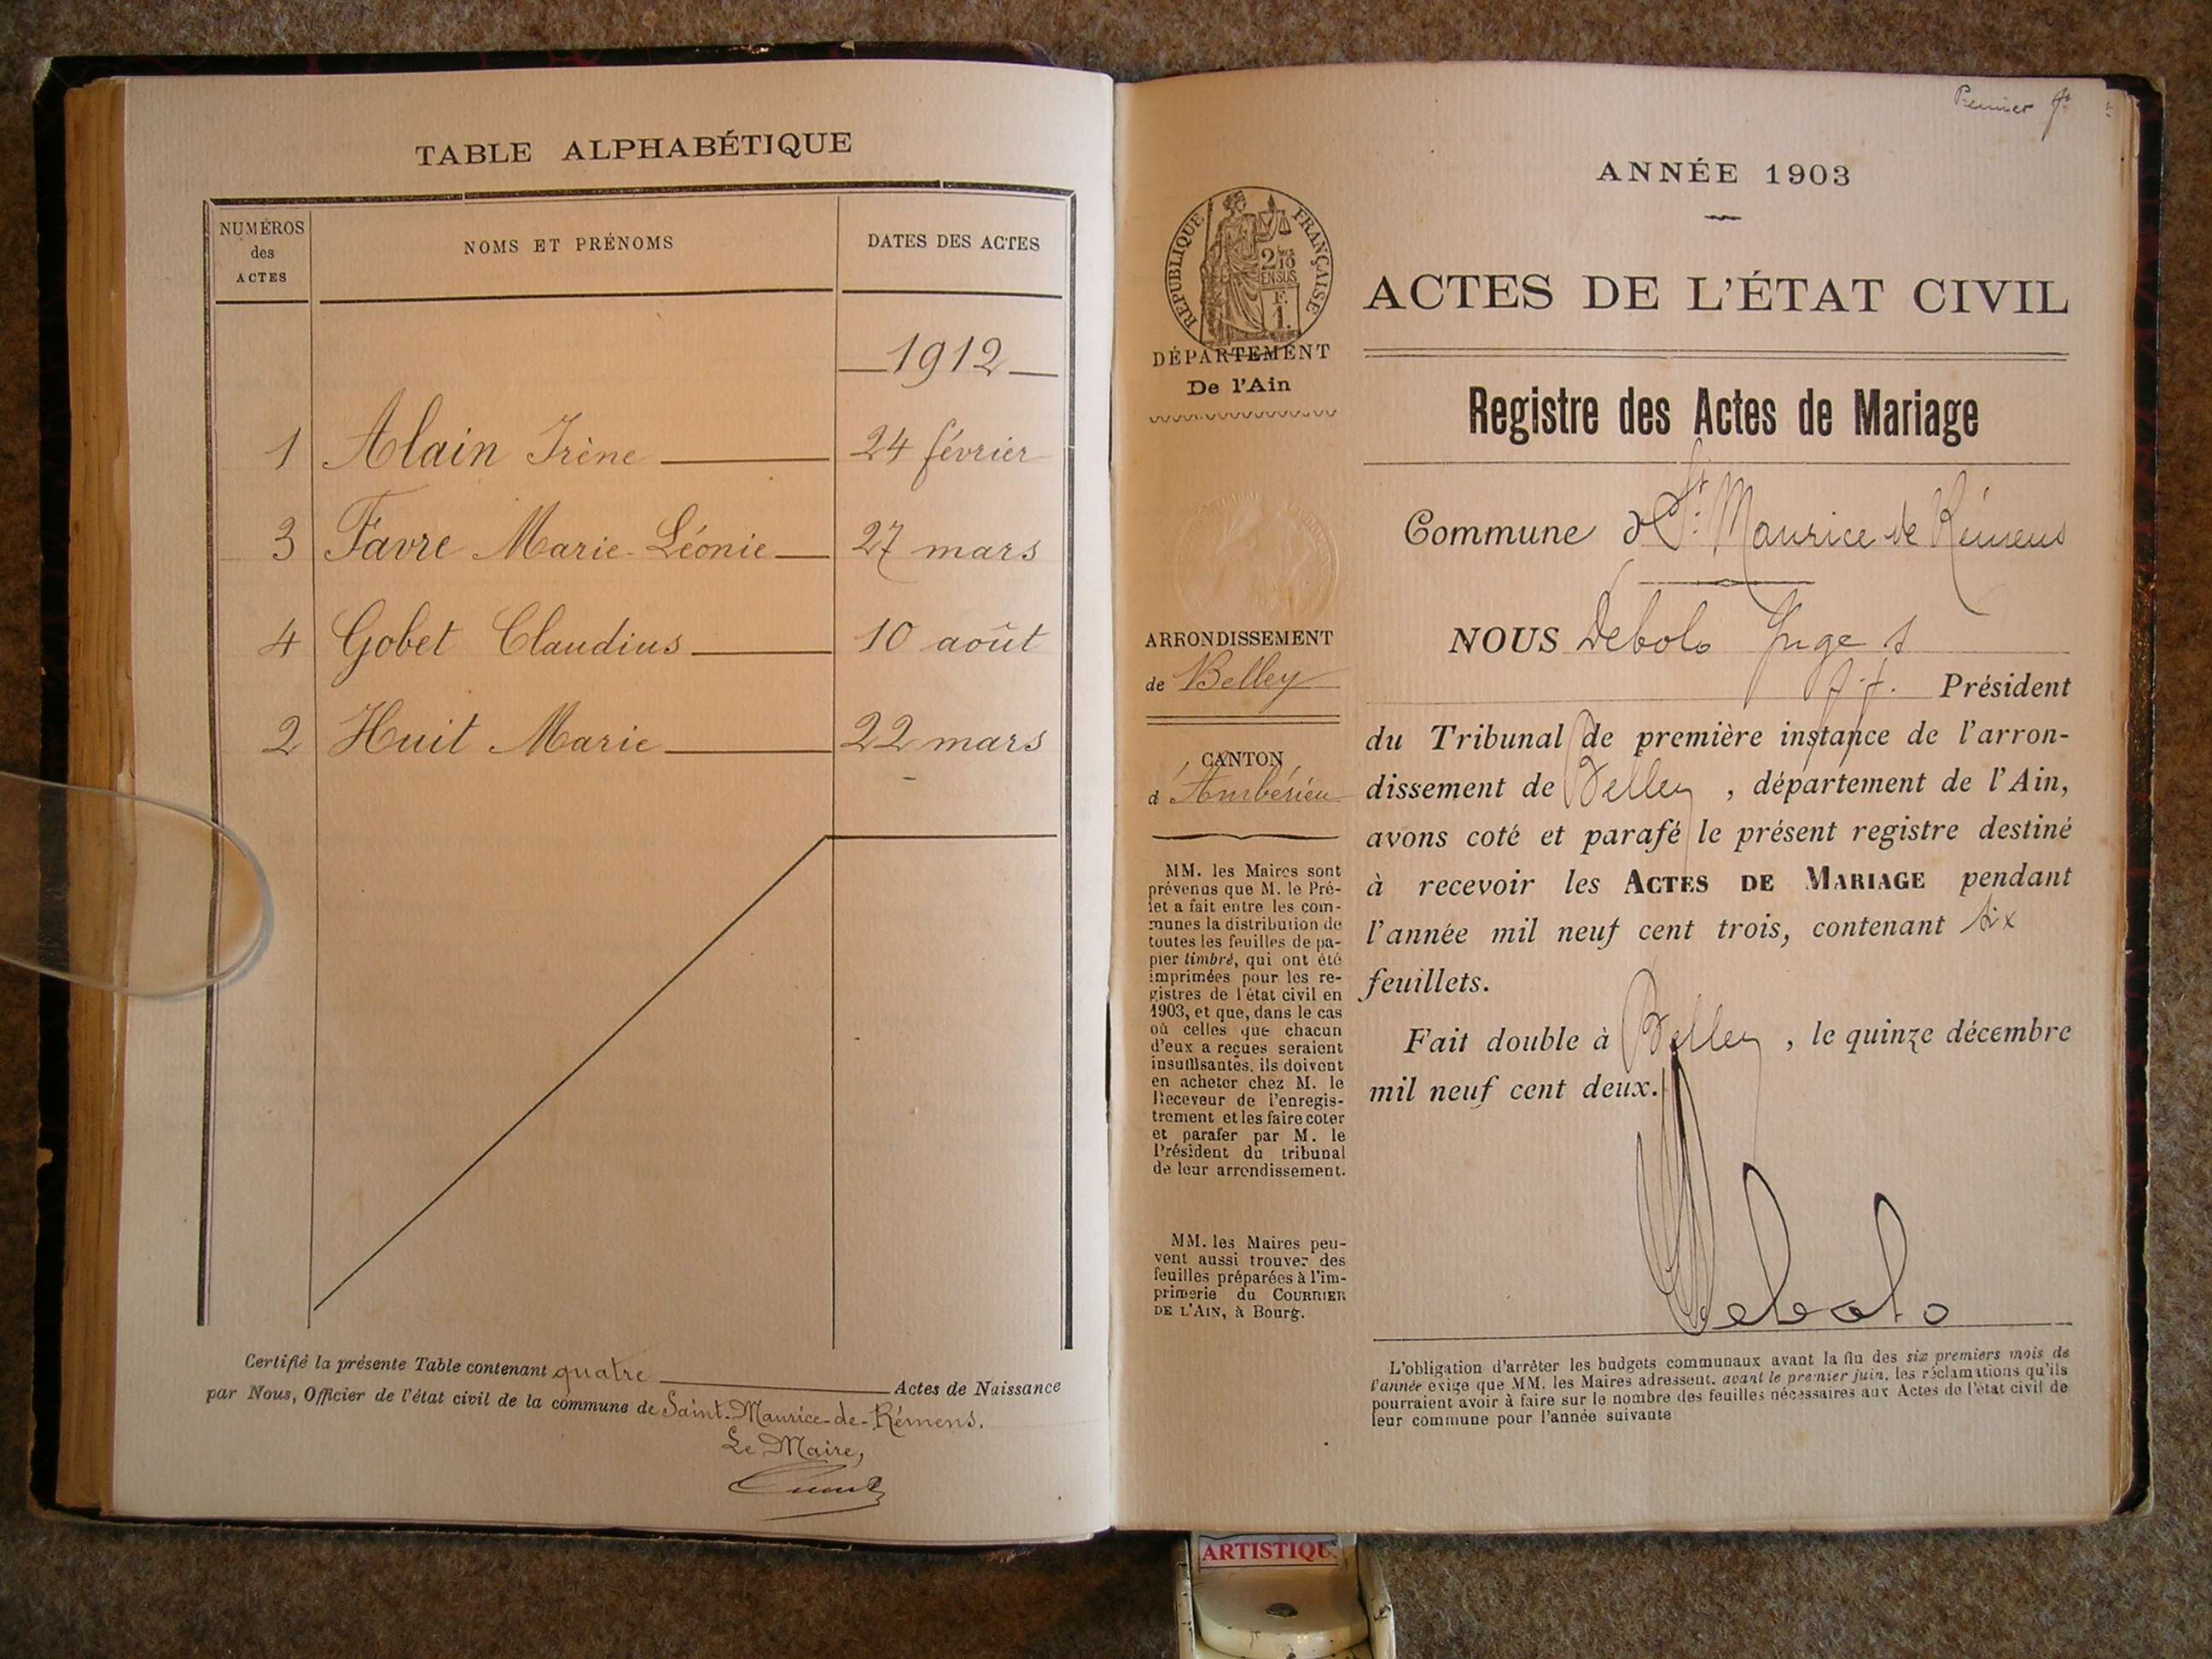 TABLE ALPHABÉTIQUE
NUMÉROS
des
ACTES
NOMS ET PRÉNOMS
DATES DES ACTES
1912
1 Alain Irène 24 février
3 Favre Marie-Léonie 27 mars
4 Gobet Claudius 10 août
2 Huit Marie 22 mars
Certifié la présente Table contenant quatre Actes de Naissance
par Nous, Officier de l'état civil de la commune de Saint-Maurice-de-Rémens.
Le Maire,
Premier
RÉPUBLIQUE FRANÇAISE
2/10
EN SUS
F.
1.
DÉPARTEMENT
De l'Ain
ARRONDISSEMENT
de Belley
CANTON
d'Ambérieu
MM. les Maires sont
prévenus que M. le Pré-
fet a fait entre les com-
munes la distribution de
toutes les feuilles de pa-
pier timbré, qui ont été
imprimées pour les re-
gistres de l'état civil en
1903, et que, dans le cas
où celles que chacun
d'eux a reçues seraient
insuffisantes, ils doivent
en acheter chez M. le
Receveur de l'enregis-
trement et les faire coter
et parafer par M. le
Président du tribunal
de leur arrondissement.
MM. les Maires peu-
vent aussi trouver des
feuilles préparées à l'im-
primerie du COURRIER
DE L'AIN, à Bourg.
ANNÉE 1903
ACTES DE L'ÉTAT CIVIL
Registre des Actes de Mariage
Commune d St Maurice de Rémens
NOUS Debolo Juge
f.f. Président
du Tribunal de première instance de l'arron-
dissement de Belley, département de l'Ain,
avons coté et parafé le présent registre destiné
à recevoir les ACTES DE MARIAGE pendant
l'année mil neuf cent trois, contenant six
feuillets.
Fait double à Belley, le quinze décembre
mil neuf cent deux.
Debolo
L'obligation d'arrêter les budgets communaux avant la fin des six premiers mois de
l'année exige que MM. les Maires adressent, avant le premier juin, les réclamations qu'ils
pourraient avoir à faire sur le nombre des feuilles nécessaires aux Actes de l'état civil de
leur commune pour l'année suivante
ARTISTIQU